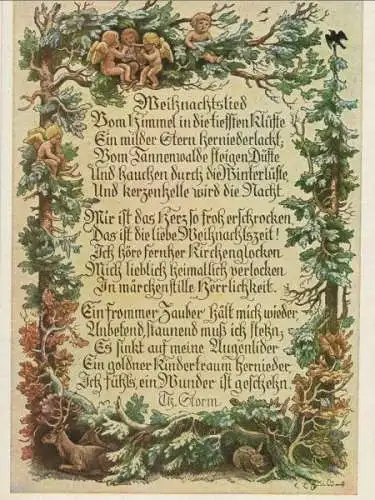 Weihnachtslied
Vom Himmel in die tiefsten Klüfte
Ein milder Stern herniederlacht;
Vom Tannenwalde steigen Düfte
Und hauchen durch die Winterlüfte
Und kerzenhelle wird die Nacht.
Mir ist das Herz so froh erschrocken
Das ist die liebe Weihnachtszeit!
Ich höre fernher Kirchenglocken
Mich lieblich heimatlich verlocken
In märchenstille Herrlichkeit.
Ein frommer Zauber hält mich wieder
Anbetend, staunend muß ich stehn;
Es sinkt auf meine Augenlider
Ein goldner Kindertraum hernieder,
Ich fühl's, ein Wunder ist geschehn.
Th. Storm